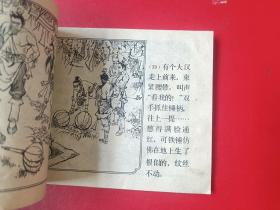 (23) 有个大汉
走上前来，束
紧腰带，叫声
“看我的！”双
手抓住锤柄，
往上一提……
憋得满脸通
红，可铁锤仿
佛在地上生了
根似的，纹丝
不动。